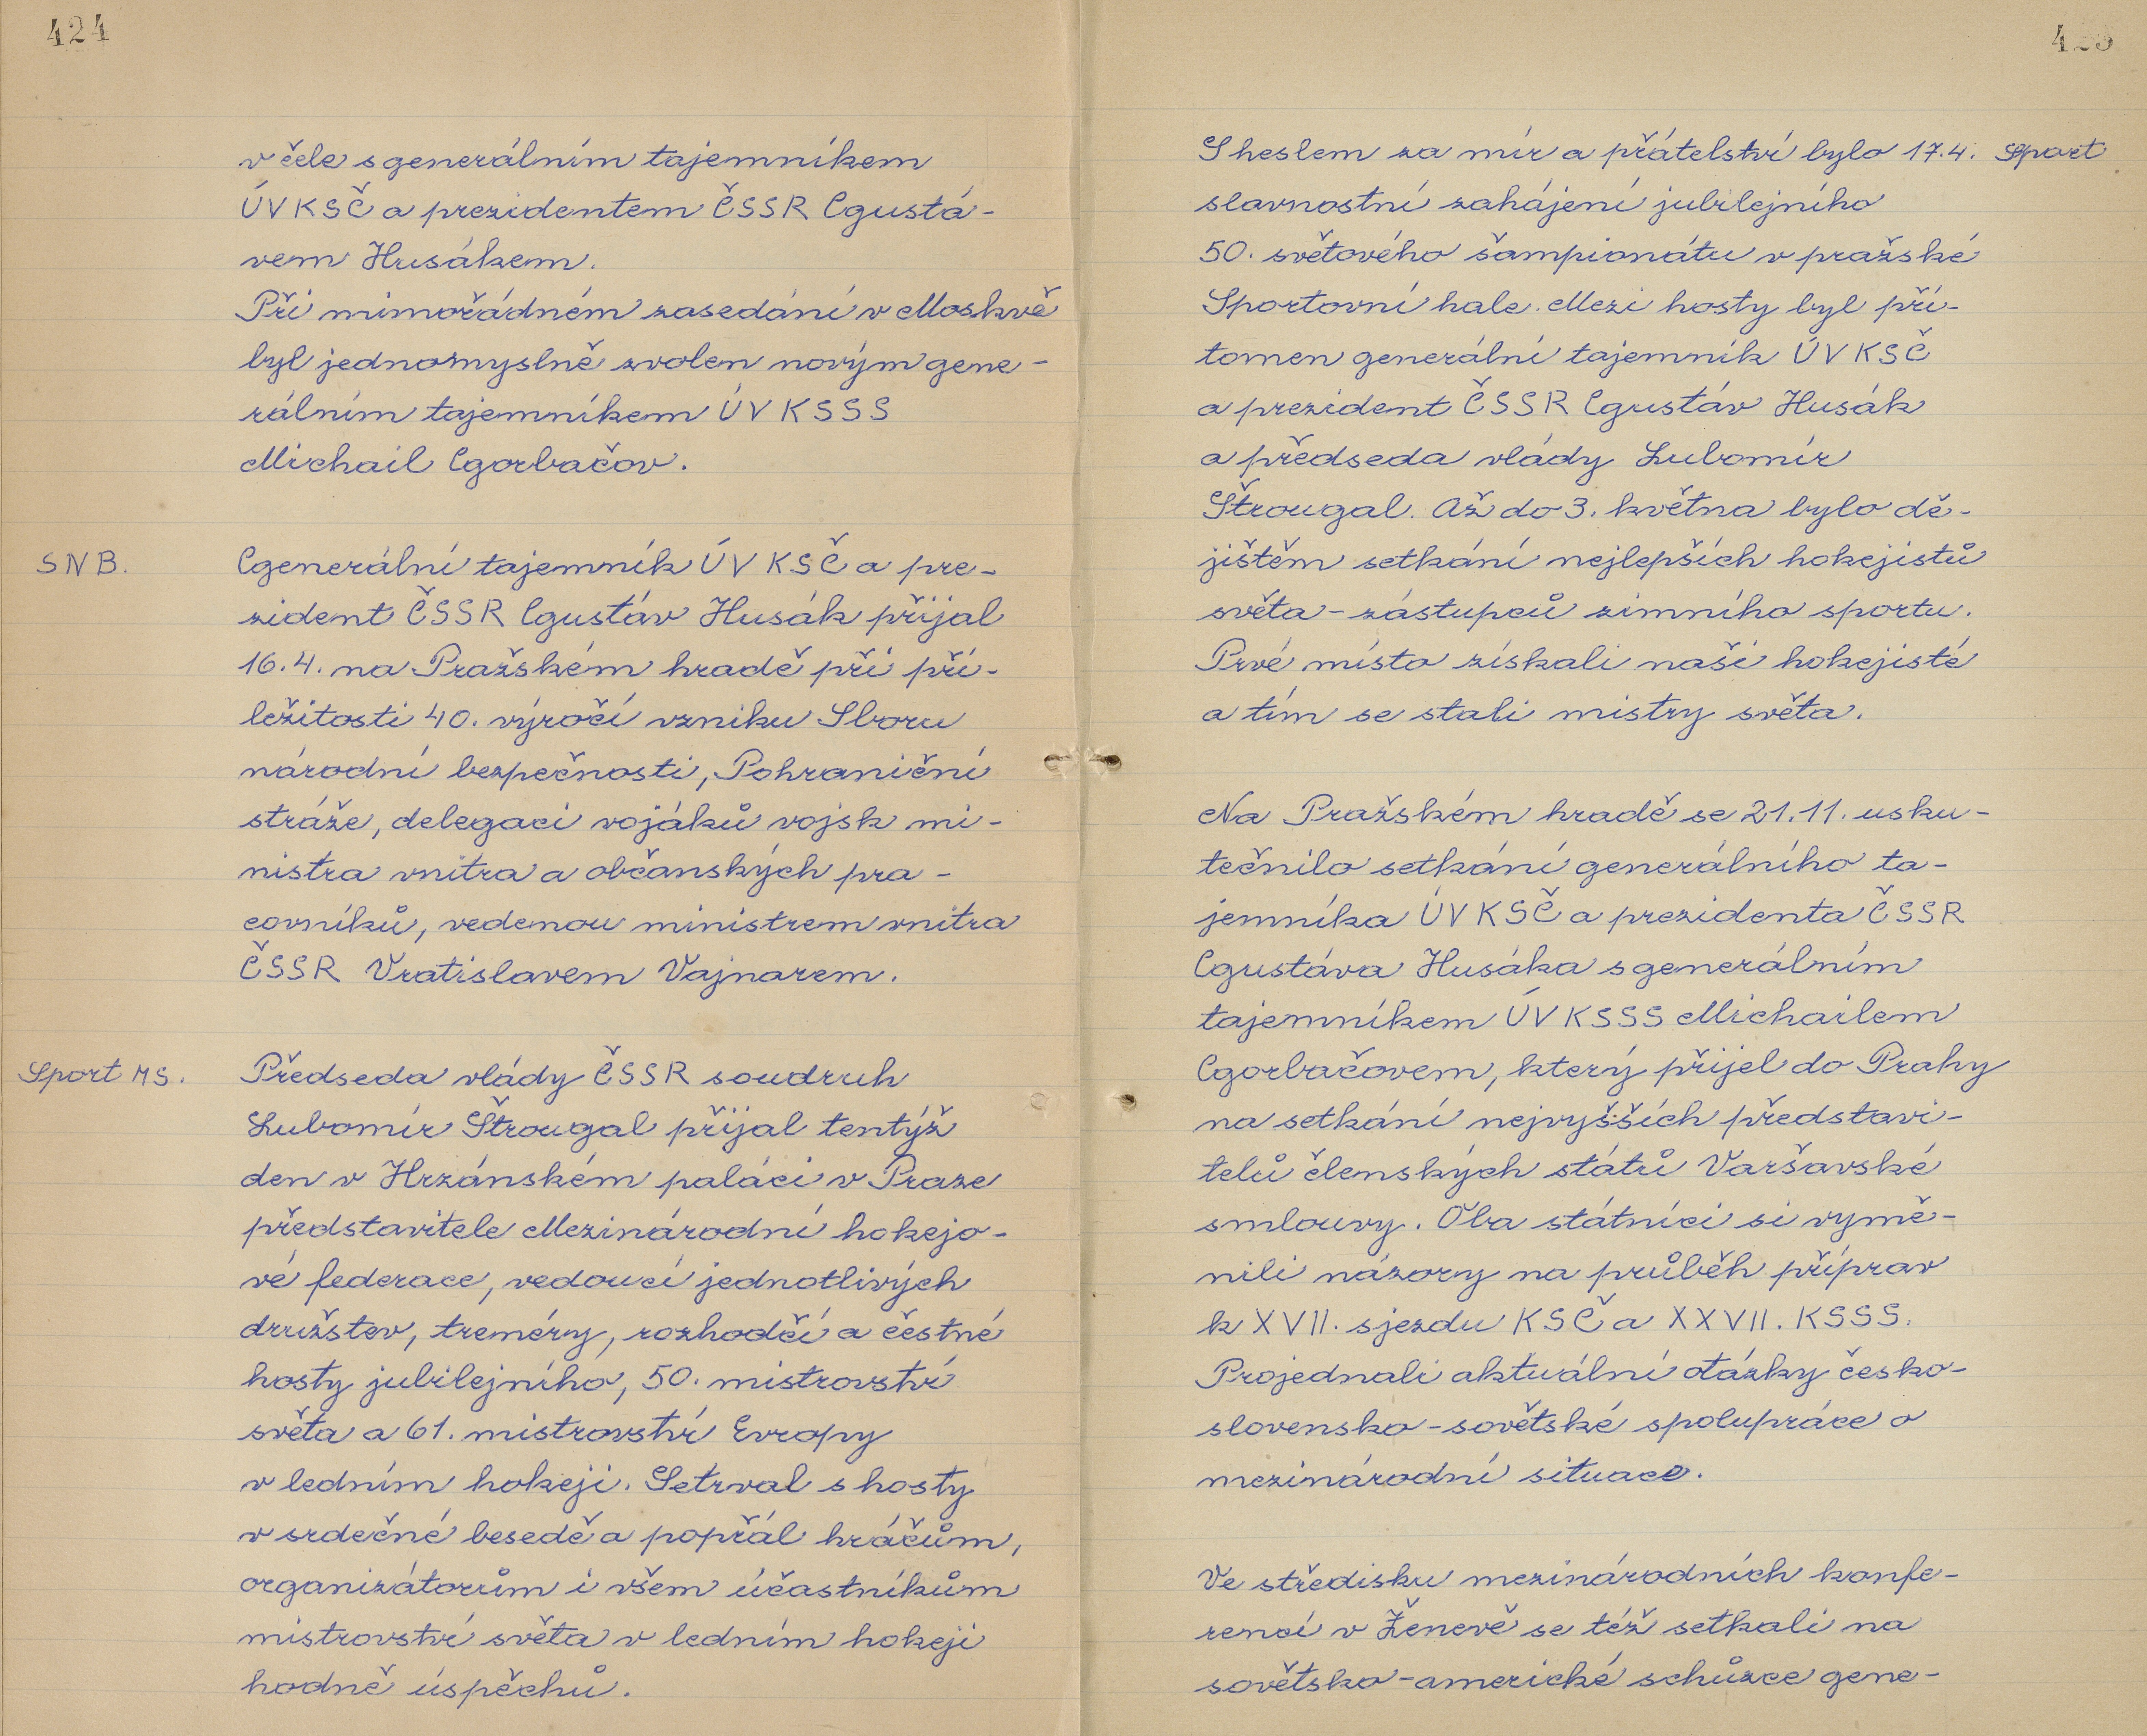 424
v čele s generálním tajemníkem
ÚV KSČ a prezidentem ČSSR Gustá-
vem Husákem.
Při mimořádném zasedání v Moskvě
byl jednomyslně zvolen novým gene-
rálním tajemníkem ÚV KSSS
Michail Gorbačov.
SNB. Generální tajemník ÚV KSČ a pre-
zident ČSSR Gustáv Husák přijal
16.4. na Pražském hradě při pří-
ležitosti 40. výročí vzniku Sboru
národní bezpečnosti, Pohraniční
stráže, delegaci vojáků vojsk mi-
nistra vnitra a občanských pra-
covníků, vedenou ministrem vnitra
ČSSR Vratislavem Vajnarem.
Sport MS. Předseda vlády ČSSR soudruh
Lubomír Štrougal přijal tentýž
den v Hrzánském paláci v Praze
představitele Mezinárodní hokejo-
vé federace, vedoucí jednotlivých
družstev, trenéry, rozhodčí a čestné
hosty jubilejního, 50. mistrovství
světa a 61. mistrovství Evropy
v ledním hokeji. Setrval s hosty
v srdečné besedě a popřál hráčům,
organizátorům i všem účastníkům
mistrovství světa v ledním hokeji
hodně úspěchů.
425
S heslem za mír a přátelství bylo 17.4. Sport
slavnostní zahájení jubilejního
50. světového šampionátu v pražské
Sportovní hale. Mezi hosty byl pří-
tomen generální tajemník ÚV KSČ
a prezident ČSSR Gustáv Husák
a předseda vlády Lubomír
Štrougal. Až do 3. května bylo dě-
jištěm setkání nejlepších hokejistů
světa - zástupců zimního sportu.
Prvé místo získali naši hokejisté
a tím se stali mistry světa.
Na Pražském hradě se 21.11. usku-
tečnilo setkání generálního ta-
jemníka ÚV KSČ a prezidenta ČSSR
Gustáva Husáka s generálním
tajemníkem ÚV KSSS Michailem
Gorbačovem, který přijel do Prahy
na setkání nejvyšších představi-
telů členských států Varšavské
smlouvy. Oba státníci si vymě-
nili názory na průběh příprav
k XVII. sjezdu KSČ a XXVII. KSSS.
Projednali aktuální otázky česko-
slovensko-sovětské spolupráce o
mezinárodní situace.
Ve středisku mezinárodních konfe-
rencí v Ženevě se též setkali na
sovětsko-americké schůzce gene-